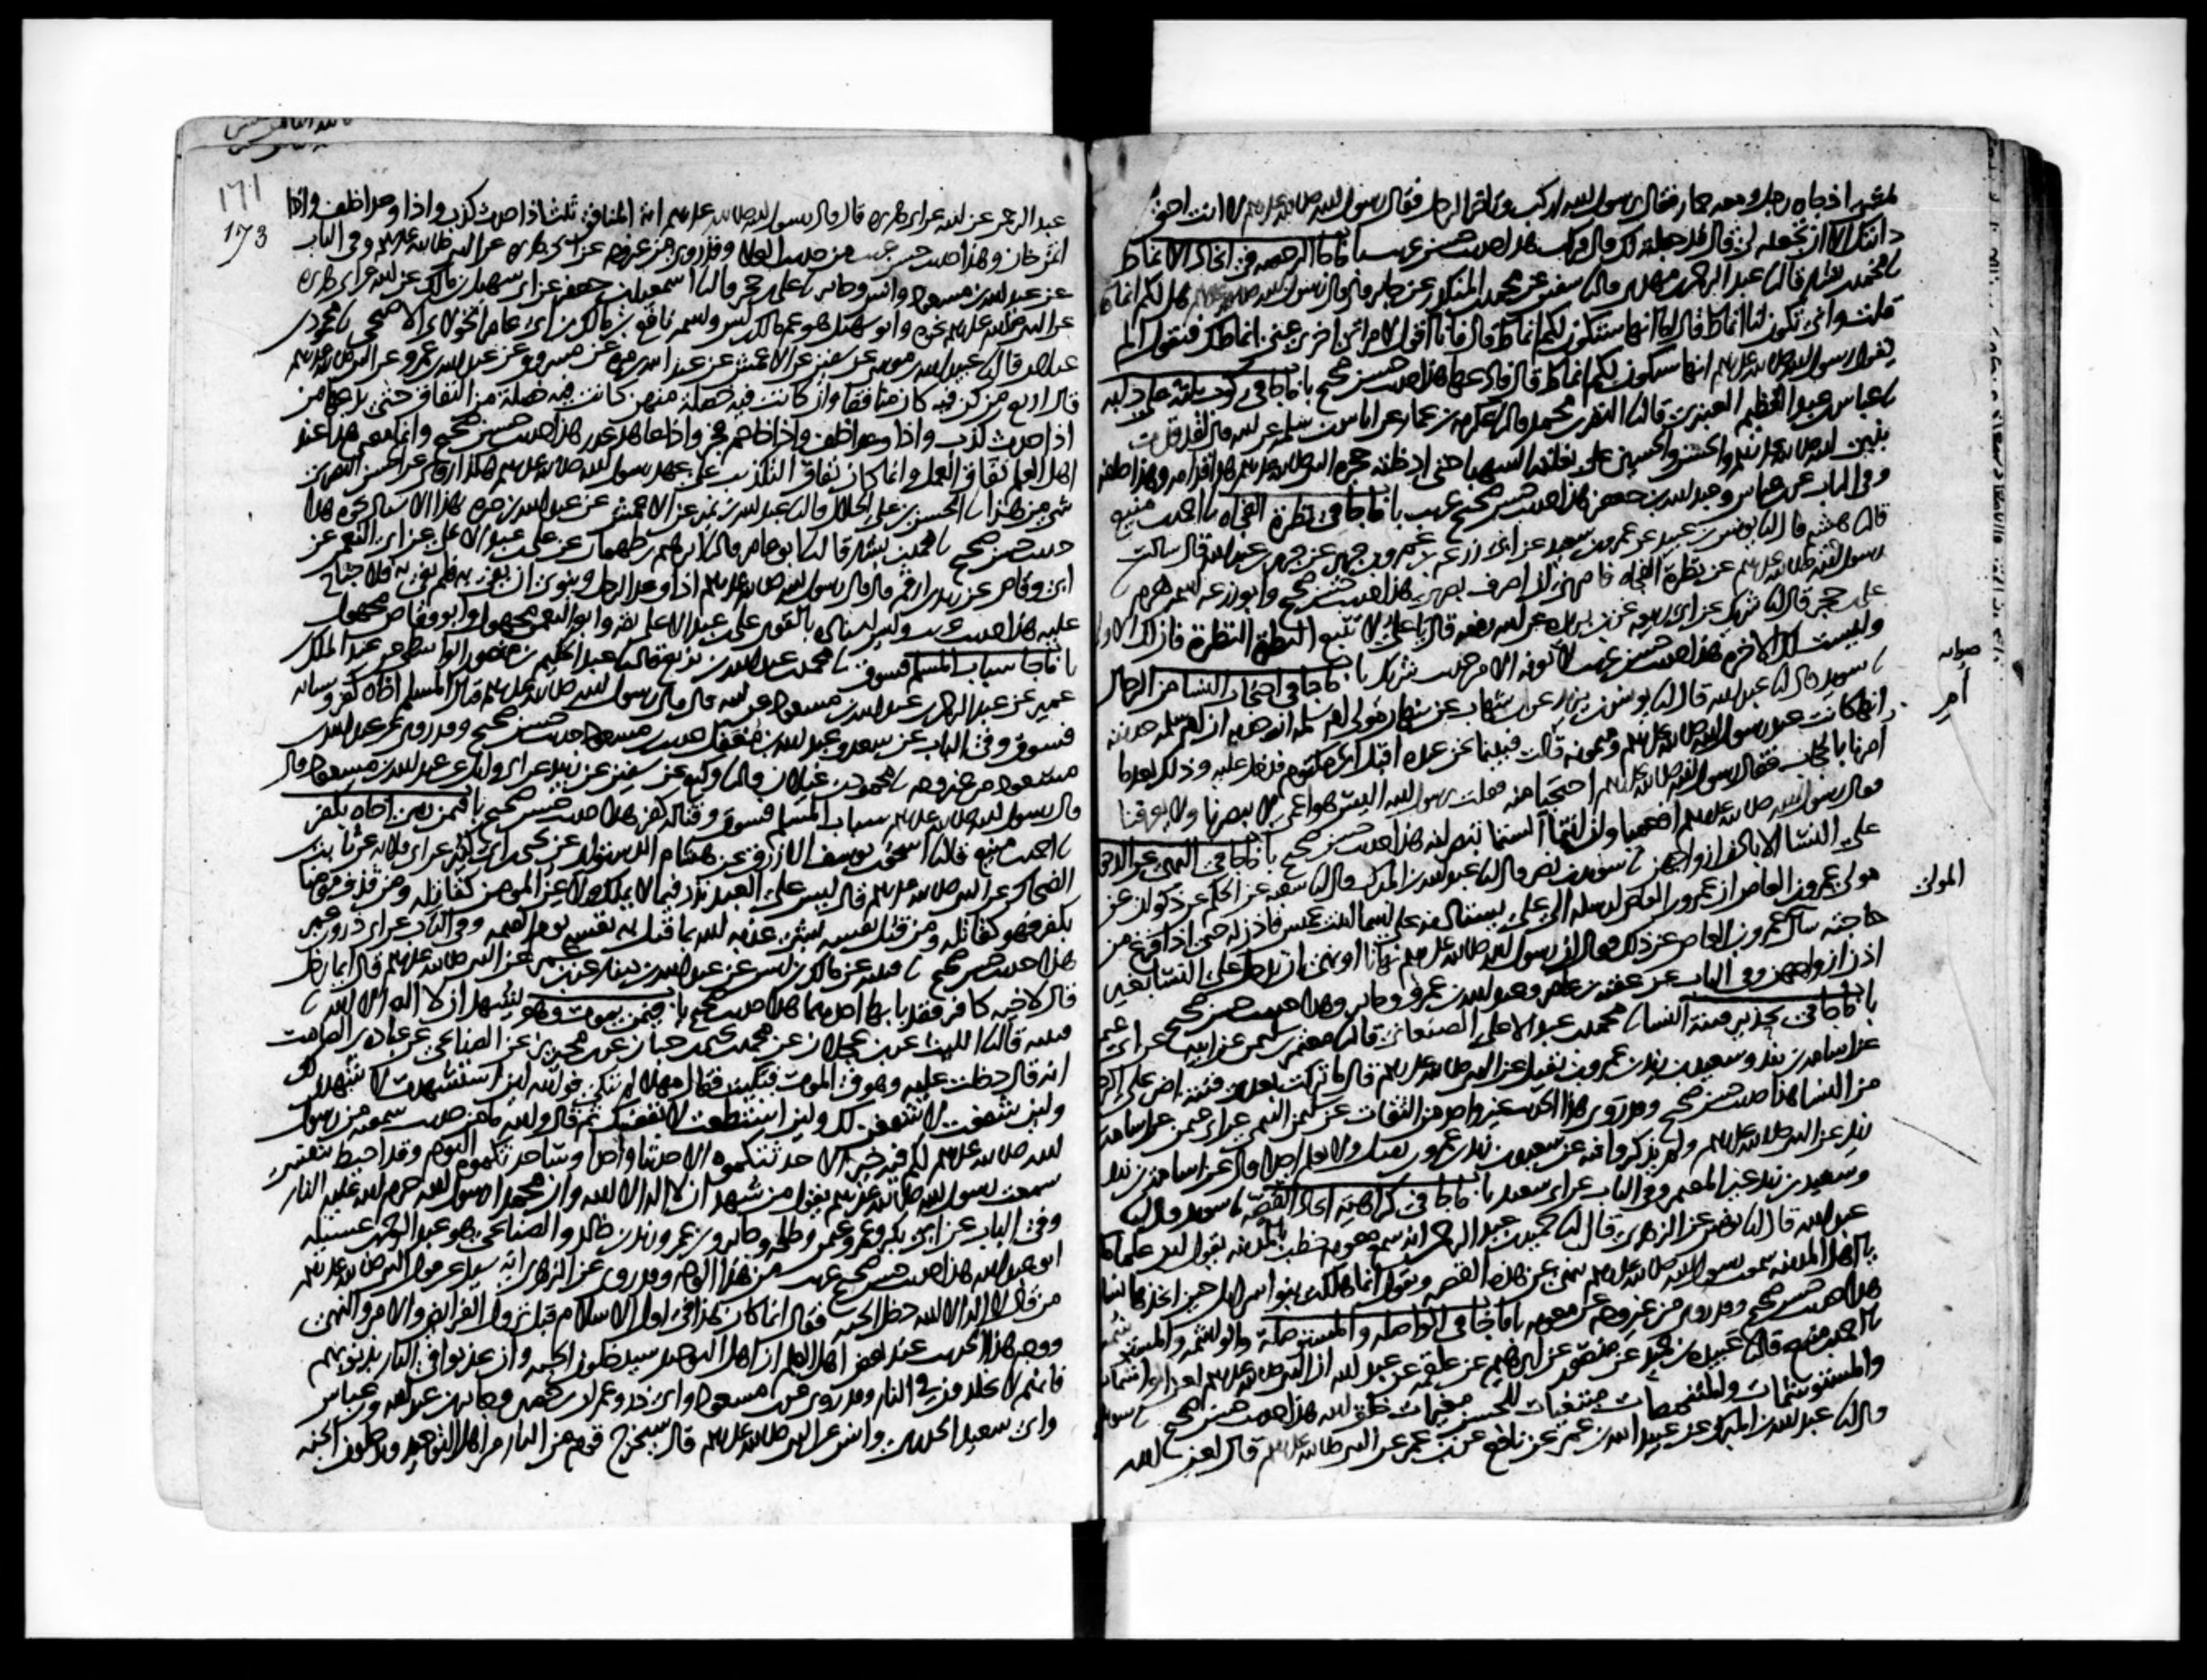 يمشي اذ جاه رجل ومعه حمار فقال يرسول الله اركب وتاخر الرجل فقال رسول الله صلى الله عليه وسلم لا انت احق
دابتك الا ان تجعله لي قال قد جعلته لك قال فركب هذا حديث حسن غريب باب ما جا في الرخصه في اتخاذ الانماط
محمد بن بشار قال نا عبد الرحمن بن مهدي قال نا سفين عن محمد بن المنكدر عن جابر قال قال رسول الله صلى الله عليه وسلم هل لكم انماط
قلت وانى تكون لنا انماط قال اما انها ستكون لكم انماط قال فانا اقول لامراتي اخري عني انماطك فتقول الم
يقل رسول الله صلى الله عليه وسلم انها ستكون لكم انماط قال فادعها هذا حديث حسن صحيح باب ما جا في ركوب ثلثة على دابه
عباس بن عبد العظيم العنبري قال نا النضر بن محمد قال نا عكرمه بن عمار عن اياس بن سلمه عن ابيه قال لقد قدت
بنبي الله صلى الله عليه وسلم والحسن والحسين على بغلته الشهبا حتى ادخلته حجره النبي صلى الله عليه وسلم هذا قدامه وهذا خلفه
وفي الباب عن ابن عباس وعبد الله بن جعفر هذا حديث حسن صحيح غريب باب ما جا في نظرة الفجاه نا احمد بن منيع
قال نا هشيم قال نا يونس بن عبيد عن عمرو بن سعيد عن ابي زرعه بن عمرو بن جرير عن جرير بن عبد الله قال سالت
رسول الله صلى الله عليه وسلم عن نظرة الفجاه فامرني ان اصرف بصري هذا حديث حسن صحيح وابو زرعه اسمه هرم
علي بن حجر قال نا شريك عن ابي ربيعه عن ابن بريده عن ابيه رفعه قال يا علي لا تتبع النظرة النظرة فان لك الاولى
وليست لك الاخره هذا حديث حسن غريب لا نعرفه الا من حديث شريك باب ما جا في احتجاب النسا من الرجال
سويد قال نا عبد الله قال نا يونس بن يزيد عن ابن شهاب عن نبهان مولى ام سلمه انه حدثه ان ام سلمه حدثته
انها كانت عند رسول الله صلى الله عليه وسلم وميمونه قالت فبينا نحن عنده اقبل ابن ام مكتوم فدخل عليه وذلك بعد ما
امرنا بالحجاب فقال رسول الله صلى الله عليه وسلم احتجبا منه فقلت يرسول الله اليس هو اعمى لا يبصرنا ولا يعرفنا
فقال رسول الله صلى الله عليه وسلم افعميا وان انتما الستما تبصرانه هذا حديث حسن صحيح باب ما جا في النهي عن الدخول
على النسا الا باذن ازواجهن سويد بن نصر قال نا عبد الله بن المبرك قال نا شعبه عن الحكم عن ذكوان عن
مولى عمرو بن العاص ان عمرو بن العاص ارسله الى علي يستاذنه على اسما ابنت عميس فاذن له حتى اذا فرغ من
حاجته سال عمرو بن العاص عن ذلك فقال ان رسول الله صلى الله عليه وسلم نهانا او نهى ان ندخل على النسا بغير
اذن ازواجهن وفي الباب عن عقبه بن عامر وعبد الله بن عمرو وجابر وهذا حديث حسن صحيح
باب ما جا في تحذير فتنة النسا محمد بن عبد الاعلى الصنعاني قال نا معتمر بن سليمن عن ابيه عن ابي عثمن
عن اسامه بن زيد وسعيد بن زيد بن عمرو بن نفيل عن النبي صلى الله عليه وسلم قال ما تركت بعدي فتنة اضر على الرجال
من النسا هذا حديث حسن صحيح وقد روى هذا الحديث غير واحد من الثقات عن سليمن التيمي عن ابي عثمن عن اسامه بن
زيد عن النبي صلى الله عليه وسلم ولم يذكروا فيه عن سعيد بن زيد بن عمرو بن نفيل ولا نعلم احدا قال عن اسامه بن زيد
وسعيد بن زيد غير المعتمر وفي الباب عن ابي سعيد باب ما جا في كراهية اتخاذ القصه سويد قال نا
عبد الله قال نا يونس عن الزهري قال نا حميد بن عبد الرحمن انه سمع معويه خطب بالمدينه يقول اين علماكم
يا اهل المدينه سمعت رسول الله صلى الله عليه وسلم ينهى عن هذه القصه ويقول انما هلكت بنو اسرايل حين اتخذها نساوهم
هذا حديث حسن صحيح وقد روي من غير وجه عن معويه باب ما جا في الواصله والمستوصلة والواشمه والمستوشمه
نا احمد بن منيع قال نا عبيده بن حميد عن منصور عن ابرهيم عن علقمه عن عبد الله ان النبي صلى الله عليه وسلم لعن الواشمات
والمستوشمات والمتنمصات مبتغيات للحسن مغيرات خلق الله هذا حديث حسن صحيح سويد
قال نا عبد الله بن المبرك عن عبيد الله بن عمر عن نافع عن ابن عمر عن النبي صلى الله عليه وسلم قال لعن الله
صوابه
أم
المولى
171
173
عبد الرحمن عن ابيه عن ابي هريره قال قال رسول الله صلى الله عليه وسلم اية المنافق ثلث اذا حدث كذب واذا وعد اخلف واذا
ائتمن خان وهذا حديث حسن غريب من حديث العلا وقد روي من غير وجه عن ابي هريره عن النبي صلى الله عليه وسلم وفي الباب
عن عبد الله بن مسعود وانس وجابر علي بن حجر قال نا اسمعيل بن جعفر عن ابي سهيل بن مالك عن ابيه عن ابي هريره
عن النبي صلى الله عليه وسلم نحوه وابو سهيل هو عم مالك بن انس واسمه نافع بن مالك بن ابي عامر الخولاني الاصبحي محمود بن
غيلان قال نا عبيد الله بن موسى عن سفين عن الاعمش عن عبد الله بن مره عن مسروق عن عبد الله بن عمرو عن النبي صلى الله عليه وسلم
قال اربع من كن فيه كان منافقا وان كانت فيه خصلة منهن كانت فيه خصلة من النفاق حتى يدعها من
اذا حدث كذب واذا وعد اخلف واذا خاصم فجر واذا عاهد غدر هذا حديث حسن صحيح وانما معنى هذا عند
اهل العلم نفاق العمل وانما كان نفاق التكذيب على عهد رسول الله صلى الله عليه وسلم هكذا روي عن الحسن البصري
شي من هذا الحسن بن علي الخلال قال نا عبد الله بن نمير عن الاعمش عن عبد الله بن مره بهذا الاسناد نحوه هذا
حديث حسن صحيح محمد بن بشار قال نا ابو عامر قال نا ابرهيم بن طهمان عن علي بن عبد الاعلى عن ابي النعمن عن
ابي وقاص عن زيد بن ارقم قال قال رسول الله صلى الله عليه وسلم اذا وعد الرجل وينوي ان يفي به فلم يف به فلا جناح
عليه هذا حديث غريب وليس اسناده بالقوي علي بن عبد الاعلى ثقه وابو النعمن مجهول وابو وقاص مجهول
باب ما جا سباب المسلم فسوق محمد بن عبد الله بن بزيع قال نا عبد الحكيم بن منصور الواسطي عن عبد الملك بن
عمير عن عبد الرحمن بن عبد الله بن مسعود عن ابيه قال قال رسول الله صلى الله عليه وسلم قتال المسلم اخاه كفر وسبابه
فسوق وفي الباب عن سعد وعبد الله بن مغفل حديث ابن مسعود حديث حسن صحيح وقد روي عن عبد الله بن
مسعود من غير وجه محمود بن غيلان قال نا وكيع عن سفين عن زبيد عن ابي وايل عن عبد الله بن مسعود قال
قال رسول الله صلى الله عليه وسلم سباب المسلم فسوق وقتاله كفر هذا حديث حسن صحيح باب فيمن رمى اخاه بكفر
احمد بن منيع قال نا اسحق بن يوسف الازرق عن هشام الدستوائي عن يحيى بن ابي كثير عن ابي قلابه عن ثابت بن
الضحاك عن النبي صلى الله عليه وسلم قال ليس على العبد نذر فيما لا يملك ولا عن المومن كقاتله ومن قذف مومنا
بكفر فهو كقاتله ومن قتل نفسه بشي عذبه الله بما قتل به نفسه يوم القيمه وفي الباب عن ابي ذر وابن عمر
هذا حديث حسن صحيح قتيبه عن مالك بن انس عن عبد الله بن دينار عن ابن عمر عن النبي صلى الله عليه وسلم قال ايما رجل
قال لاخيه كافر فقد باء بها احدهما هذا حديث صحيح باب فيمن يموت وهو يشهد ان لا اله الا الله
قتيبه قال نا الليث عن ابن عجلان عن محمد بن يحيى بن حبان عن ابن محيريز عن الصنابحي عن عباده بن الصامت
انه قال دخلت عليه وهو في الموت فبكيت فقال مهلا لم تبكي فوالله لين استشهدت لاشهدن لك
ولين شفعت لاشفعن لك ولين استطعت لانفعنك ثم قال والله ما من حديث سمعته من رسول
الله صلى الله عليه وسلم لكم فيه خير الا حدثتكموه الا حديثا واحدا وساحدثكموه اليوم وقد احيط بنفسي
سمعت رسول الله صلى الله عليه وسلم يقول من شهد ان لا اله الا الله وان محمدا رسول الله حرم الله عليه النار
وفي الباب عن ابي بكر وعمر وعثمن وطلحه وجابر وابن عمر وزيد بن خالد والصنابحي هو عبد الرحمن بن عسيله
ابو عبد الله هذا حديث حسن صحيح غريب من هذا الوجه وقد روي عن الزهري انه سيل عن قول النبي صلى الله عليه وسلم
من قال لا اله الا الله دخل الجنه فقال انما كان هذا في اول الاسلام قبل نزول الفرايض والامر والنهي
ووجه هذا الحديث عند بعض اهل العلم ان اهل التوحيد سيدخلون الجنه وان عذبوا في النار بذنوبهم
فانهم لا يخلدون في النار وقد روي عن ابن مسعود وابي ذر وعمران بن حصين وجابر بن عبد الله وابن عباس
وابي سعيد الخدري وانس عن النبي صلى الله عليه وسلم قال سيخرج قوم من النار من اهل التوحيد ويدخلون الجنه